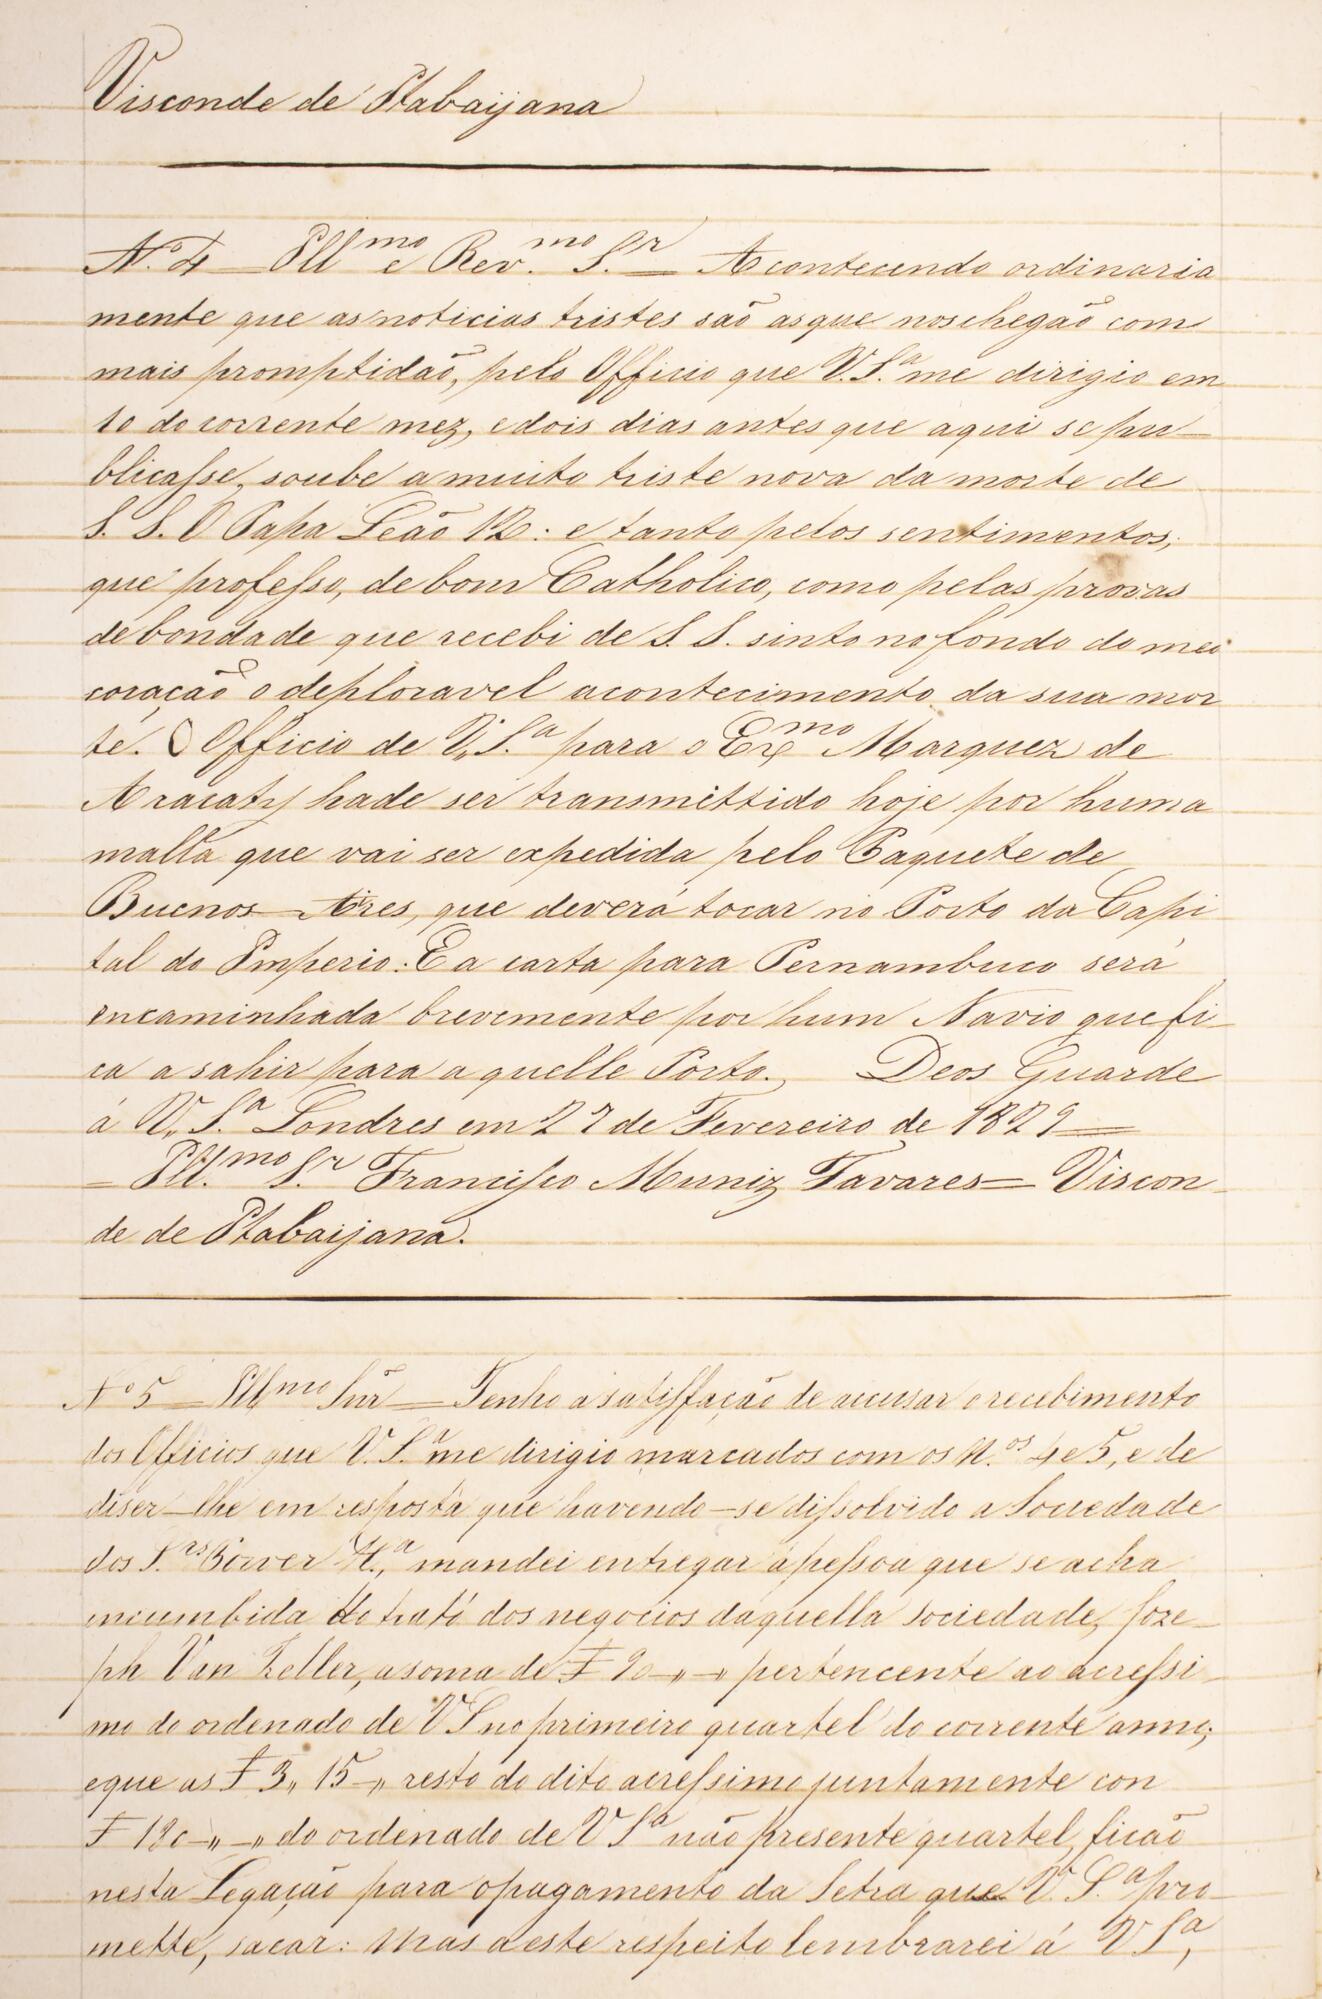 Visconde de Itabaijana
N.º 4 = Ill.mo e Rev.mo S.r = Acontecendo ordinaria
mente que as noticias tristes são as que nos chegão com
mais promptidão, pelo Officio que V. S.ª me dirigio em
10 do corrente mez, e dois dias antes que aqui se pu-
blicasse, soube a muito triste nova da morte de
S. S. O Papa Leão 12: e tanto pelos sentimentos,
que professo, de bom Catholico, como pelas provas
de bondade que recebi de S. S. sinto no fondo do meu
coração o deploravel acontecimento da sua mor
te. O Officio de V. S.ª para o Ex.mo Marquez de
Aracaty hade ser transmettido hoje por huma
malla que vai ser expedida pelo Paquete de
Buenos-Aires, que deverá tocar no Porto da Capi
tal do Imperio: E a carta para Pernambuco será
encaminhada brevemente por hum Navio que fi-
ca a sahir para aquelle Porto. Deos Guarde
á V. S.ª Londres em 27 de Fevereiro de 1829 =
= Ill.mo S.r Francisco Muniz Tavares = Viscon-
de de Itabaijana.
N.º 5 = Ill.mo Snr = Tenho a satisffação de accusar o recebimento
dos Officios que V. S.ª me dirigio marcados com os N.os 4 e 5, e de
diser-lhe em resposta que havendo-se dissolvido a Sociedade
dos S.rs mandei entregar á pessoa que se acha
incumbida do trato dos negocios daquella sociedade, Joze-
ph Van Zeller, a soma de £ 90-"-" pertencente ao acressi-
mo do ordenado de V S no primeiro quartel do corrente anno;
e que as £ 3" 15-" resto do dito acressimo juntamente con
£ 120-"-" do ordenado de V Sª não presente quartel, ficão
nesta Legação para o pagamento da Letra que V. S.ª pro-
mette, sacar: mas a este respeito lembrarei á V Sª,